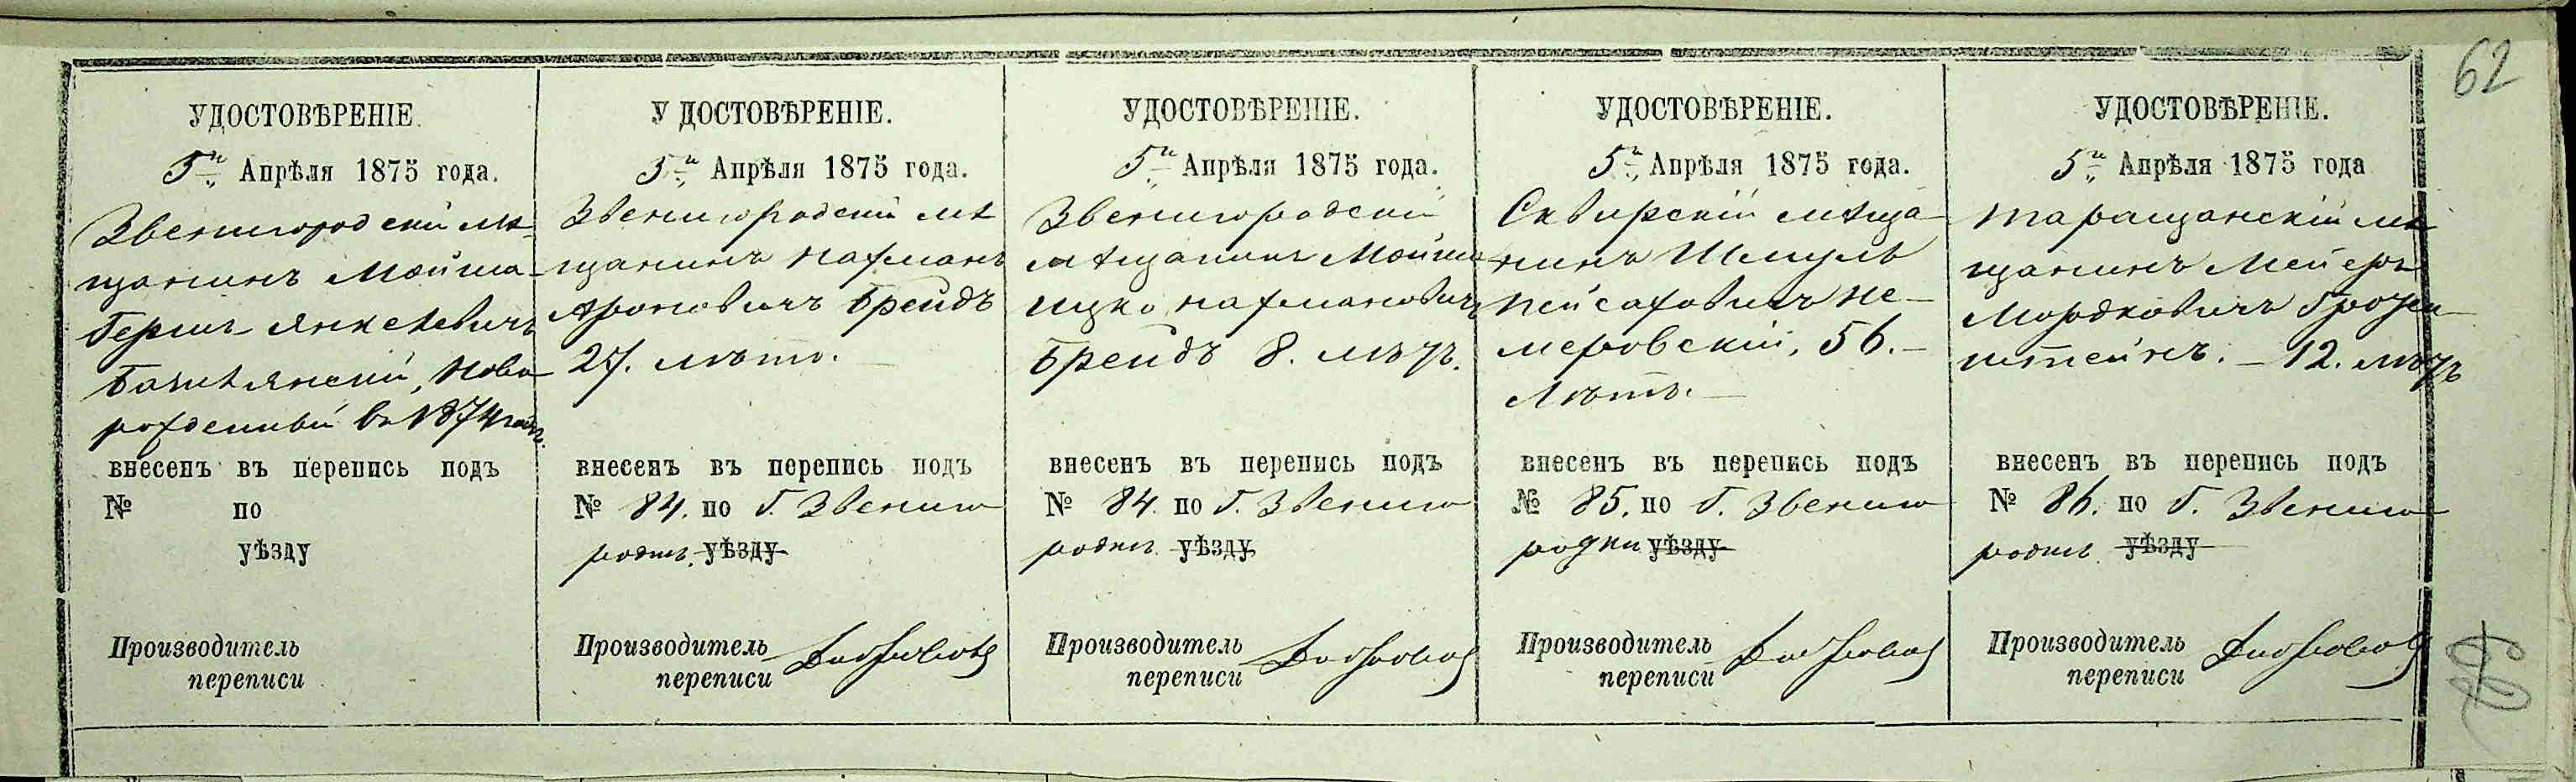 62
УДОСТОВѢРЕНІЕ.
5го Апрѣля 1875 года.
Звенигородскій мѣ-
щанинъ Мойша-
Гершъ Янкелевичъ
новорожденный въ 1874 году.
внесенъ въ перепись подъ
№ по
уѣзду
Производитель
переписи
У ДОСТОВѢРЕНІЕ.
5го Апрѣля 1875 года.
Звенигородскій мѣ
щанинъ Нахманъ
Ароновичъ Брейдъ
27. лѣтъ.
внесенъ въ перепись подъ
№ 84. по Г. Звениго
родкѣ. уѣзду
Производитель
переписи
УДОСТОВѢРЕНІЕ.
5го Апрѣля 1875 года.
Звенигородскій
мѣщанинъ Мойше
Ицко Нахмановичъ
Брейдъ 8. лѣтъ.
внесенъ въ перепись подъ
№ 84. по Г. Звениго
родкѣ уѣзду
Производитель
переписи
УДОСТОВѢРЕНІЕ.
5го Апрѣля 1875 года.
Сквирскій мѣща-
нинъ Шмуль
Пейсаховичъ Не-
меровскій, 56.
лѣтъ.
внесенъ въ перепись подъ
№ 85. по Г. Звениго
родки уѣзду
Производитель
переписи
УДОСТОВѢРЕНІЕ.
5го Апрѣля 1875 года
Таращанскій мѣ
щанинъ Мейеръ
Мордковичъ
12. лѣтъ
внесенъ въ перепись подъ
№ 86. по Г. Звениго
родкѣ уѣзду
Производитель
переписи